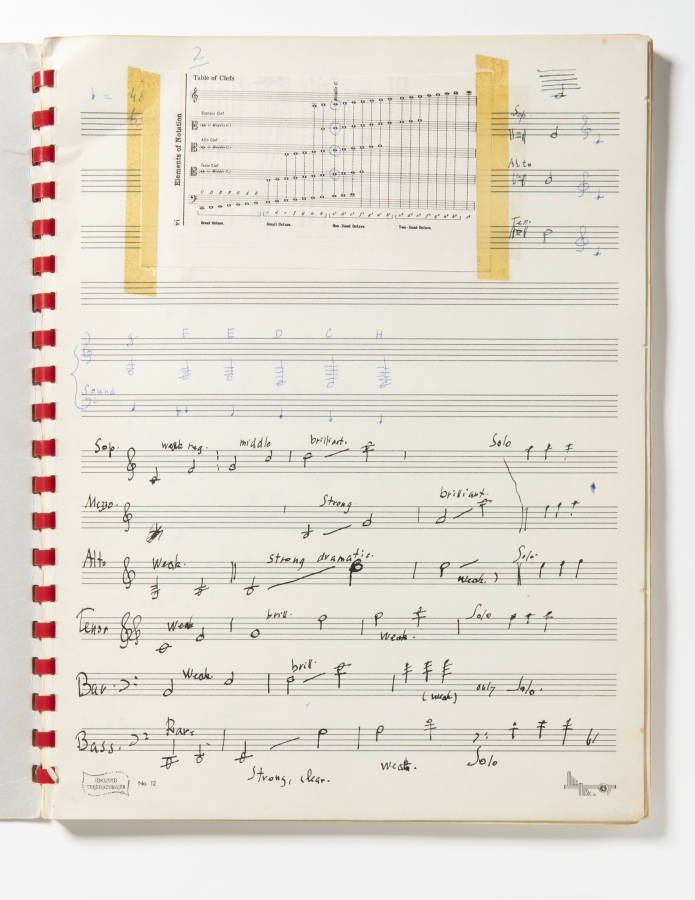 2
Table of Clefs
Middle C
Soprano Clef
(Middle C)
Alto Clef
(Middle C)
Tenor Clef
(Middle C)
C D E F G A B
Great Octave. Small Octave. One-lined Octave. Two-lined Octave.
Elements of Notation
vi
Sop
Alto
Ten.
F E D C H
Sound
Sop. weak reg. middle brilliant. Solo
Mezzo. Strong brilliant.
Alto Weak. Strong dramatic. weak. Solo.
Tenor Weak brill. weak. Solo
Bar. Weak brill. (weak) only Solo.
Bass. Strong, clear. weak. Solo
No. 12